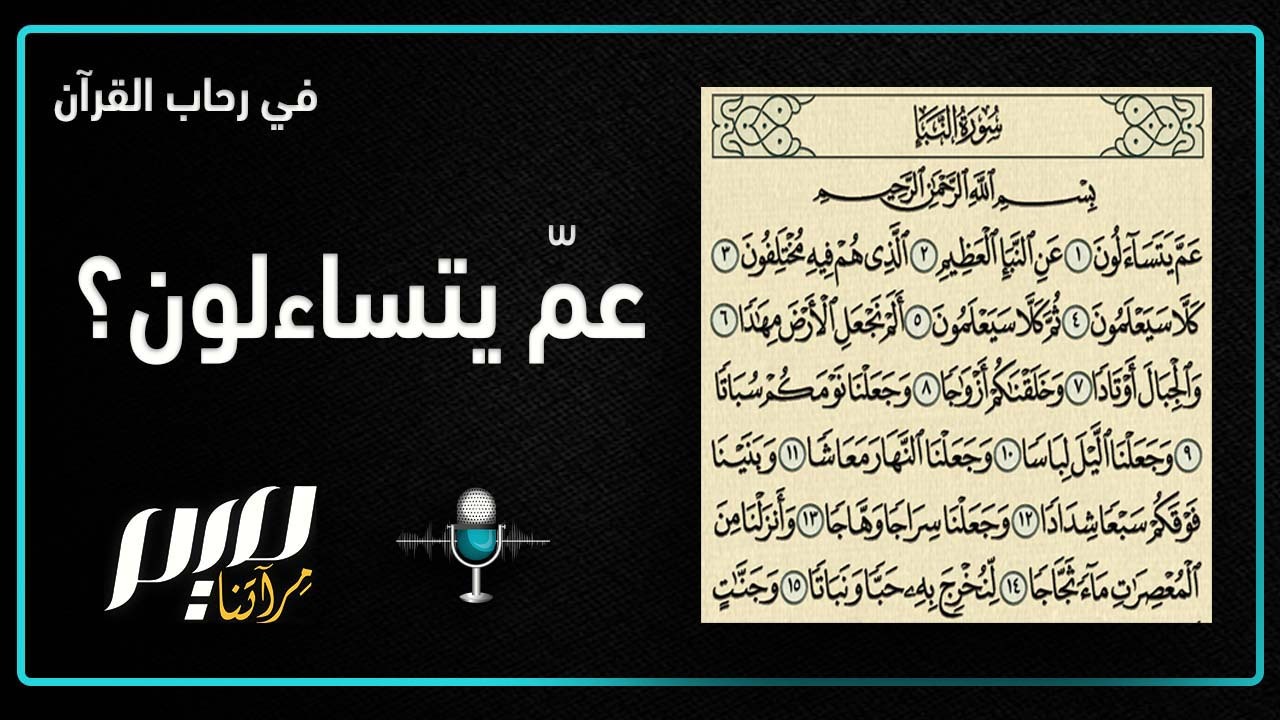 في رحاب القرآن
عمّ يتساءلون؟
سِيَر
مِرآتنا
سُورَةُ النَّبَإِ
بِسْمِ اللَّهِ الرَّحْمَٰنِ الرَّحِيمِ
عَمَّ يَتَسَآءَلُونَ ١ عَنِ ٱلنَّبَإِ ٱلْعَظِيمِ ٢ ٱلَّذِى هُمْ فِيهِ مُخْتَلِفُونَ ٣
كَلَّا سَيَعْلَمُونَ ٤ ثُمَّ كَلَّا سَيَعْلَمُونَ ٥ أَلَمْ نَجْعَلِ ٱلْأَرْضَ مِهَٰدًا ٦
وَٱلْجِبَالَ أَوْتَادًا ٧ وَخَلَقْنَٰكُمْ أَزْوَٰجًا ٨ وَجَعَلْنَا نَوْمَكُمْ سُبَاتًا
٩ وَجَعَلْنَا ٱلَّيْلَ لِبَاسًا ١٠ وَجَعَلْنَا ٱلنَّهَارَ مَعَاشًا ١١ وَبَنَيْنَا
فَوْقَكُمْ سَبْعًا شِدَادًا ١٢ وَجَعَلْنَا سِرَاجًا وَهَّاجًا ١٣ وَأَنزَلْنَا مِنَ
ٱلْمُعْصِرَٰتِ مَآءً ثَجَّاجًا ١٤ لِّنُخْرِجَ بِهِۦ حَبًّا وَنَبَاتًا ١٥ وَجَنَّٰتٍ